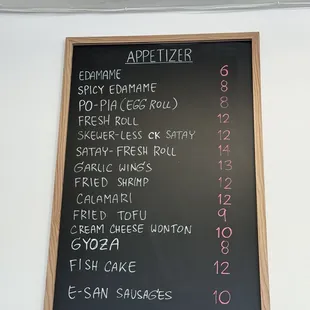 APPETIZER
EDAMAME 6
SPICY EDAMAME 8
PO-PIA (EGG ROLL) 8
FRESH ROLL 12
SKEWER-LESS CK SATAY 12
SATAY-FRESH ROLL 14
GARLIC WING'S 13
FRIED SHRIMP 12
CALAMARI 12
FRIED TOFU 9
CREAM CHEESE WONTON 10
GYOZA 8
FISH CAKE 12
E-SAN SAUSAGES 10